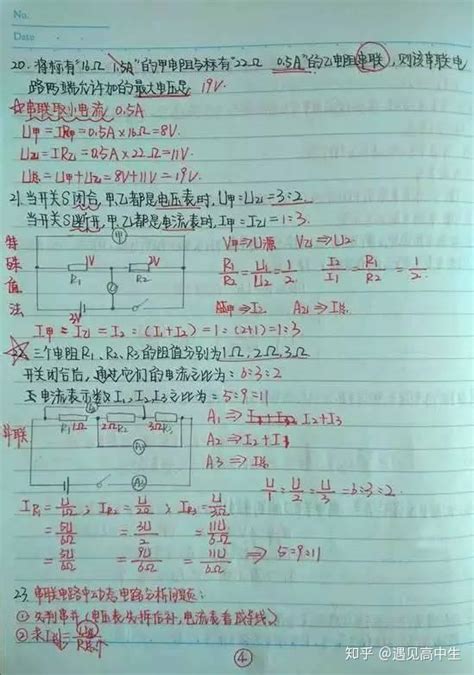 No.
Date
20. 将标有"16Ω 1.5A"的甲电阻与标有"22Ω 0.5A"的乙电阻串联, 则该串联电
路两端允许加的最大电压是 19V.
☆串联取小电流 0.5A
U甲=IR甲=0.5A×16Ω=8V.
U乙=IR乙=0.5A×22Ω=11V.
U总=U甲+U乙=8V+11V=19V.
21. 当开关S闭合, 甲乙都是电压表时, U甲=U乙=3:2.
当开关S断开, 甲乙都是电流表时, I甲=I乙=1:3.
特殊值法
甲
1V
2V
R1
R2
3V
V甲⇒U源 V乙⇒U2.
R1/R2=U1/U2=1/2 I2/I1=R1/R2=1/2
⇒I2 A乙⇒I总.
I甲=I乙=I2=(I1+I2)=1=(2+1)=1:3
三个电阻R1、R2、R3的阻值分别为1Ω, 2Ω, 3Ω
开关闭合后, 通过它们的电流之比为=6:3:2
电流表示数I1, I2, I3之比为=5:9:11
并联
R1 1Ω
2Ω R2
3Ω R3
A1⇒ I2+I3
A2⇒I2+I1
A3⇒I总
U/1=U/2=U/3=6:3:2
⇒5:9:11
23. 串联电路中动态电路分析问题:
①先判串并(电压表先拆后补, 电流表看成导线)
④
知乎 @遇见高中生